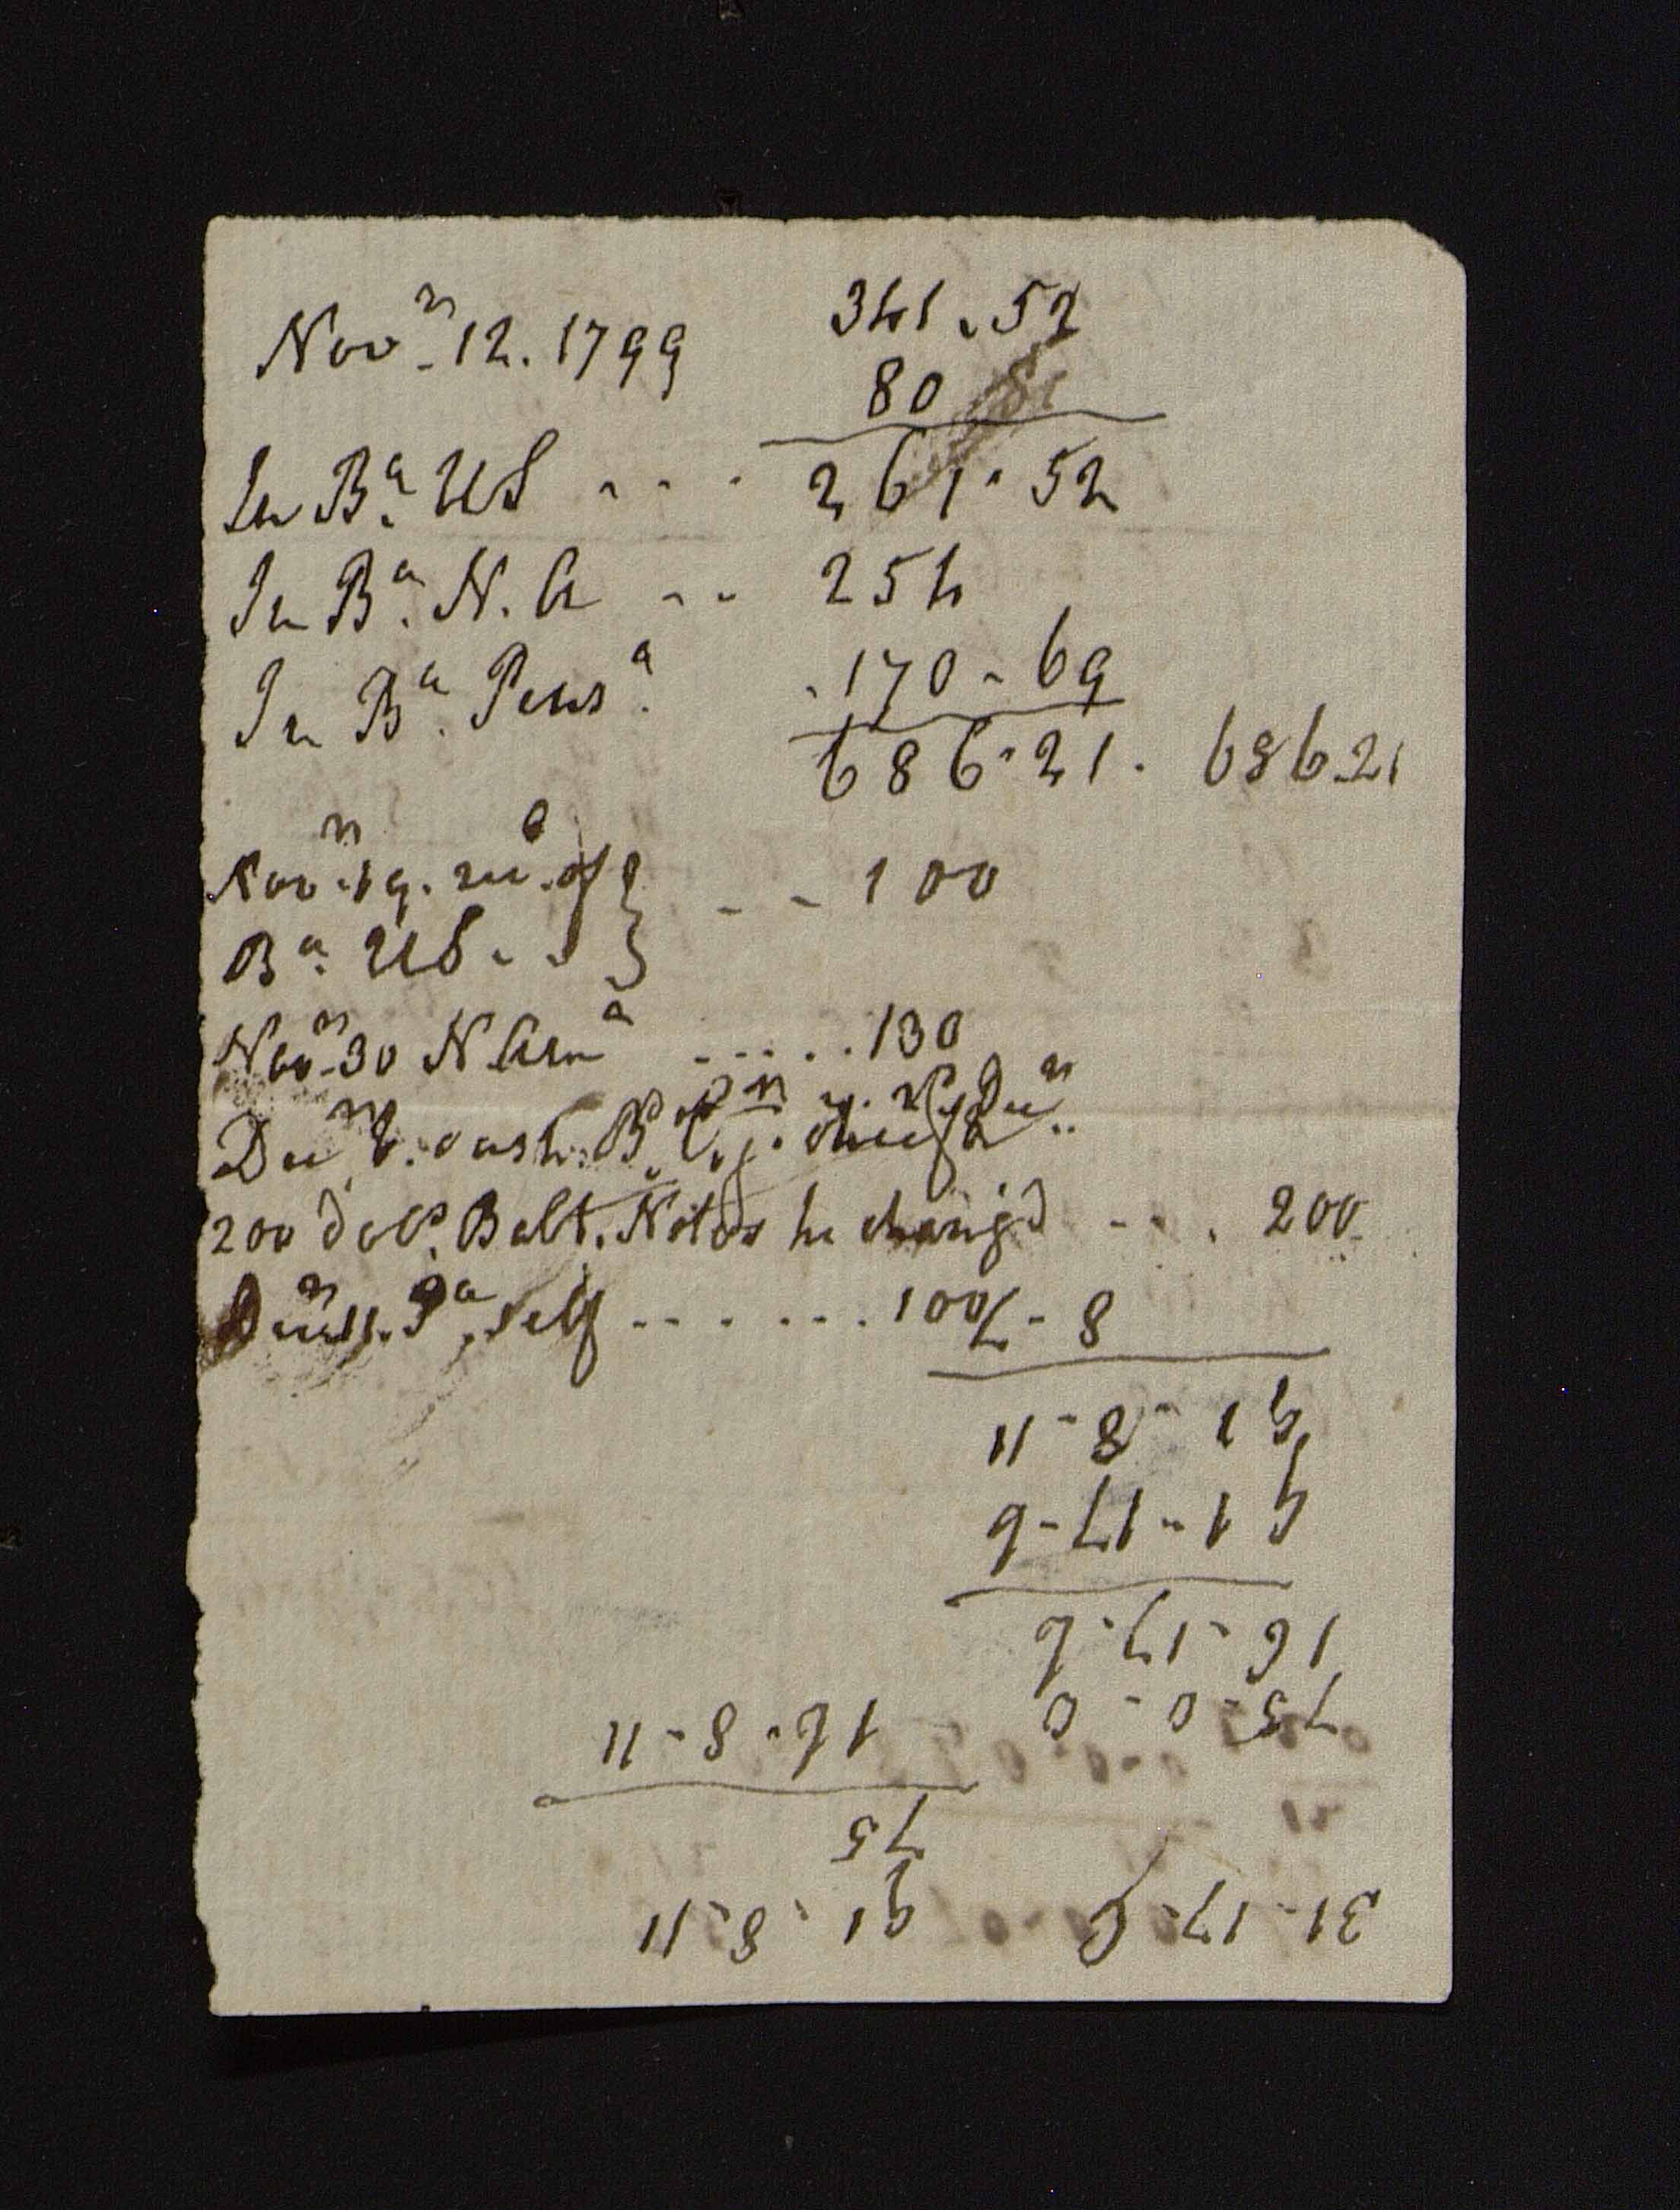 Novr 12. 1799
341.52
80
In Ba. US - - - 261.52
In Ba. N. A - - 254
In Ba. Pensa. 170-69
686.21. 686.21
Novr 19. of - - 100
Ba. US - -
Novr 30 N Ama - - - - - 130
Decr cash
200 dols. Balt. Notes he chang'd - - - . 200
Decr 11. Pa. self - - - - - - . 100
8
91-8-11
31-17-6
91-8-11
75
16-8-11
75-0-0
16-17-6
91-17-6
91-8-11